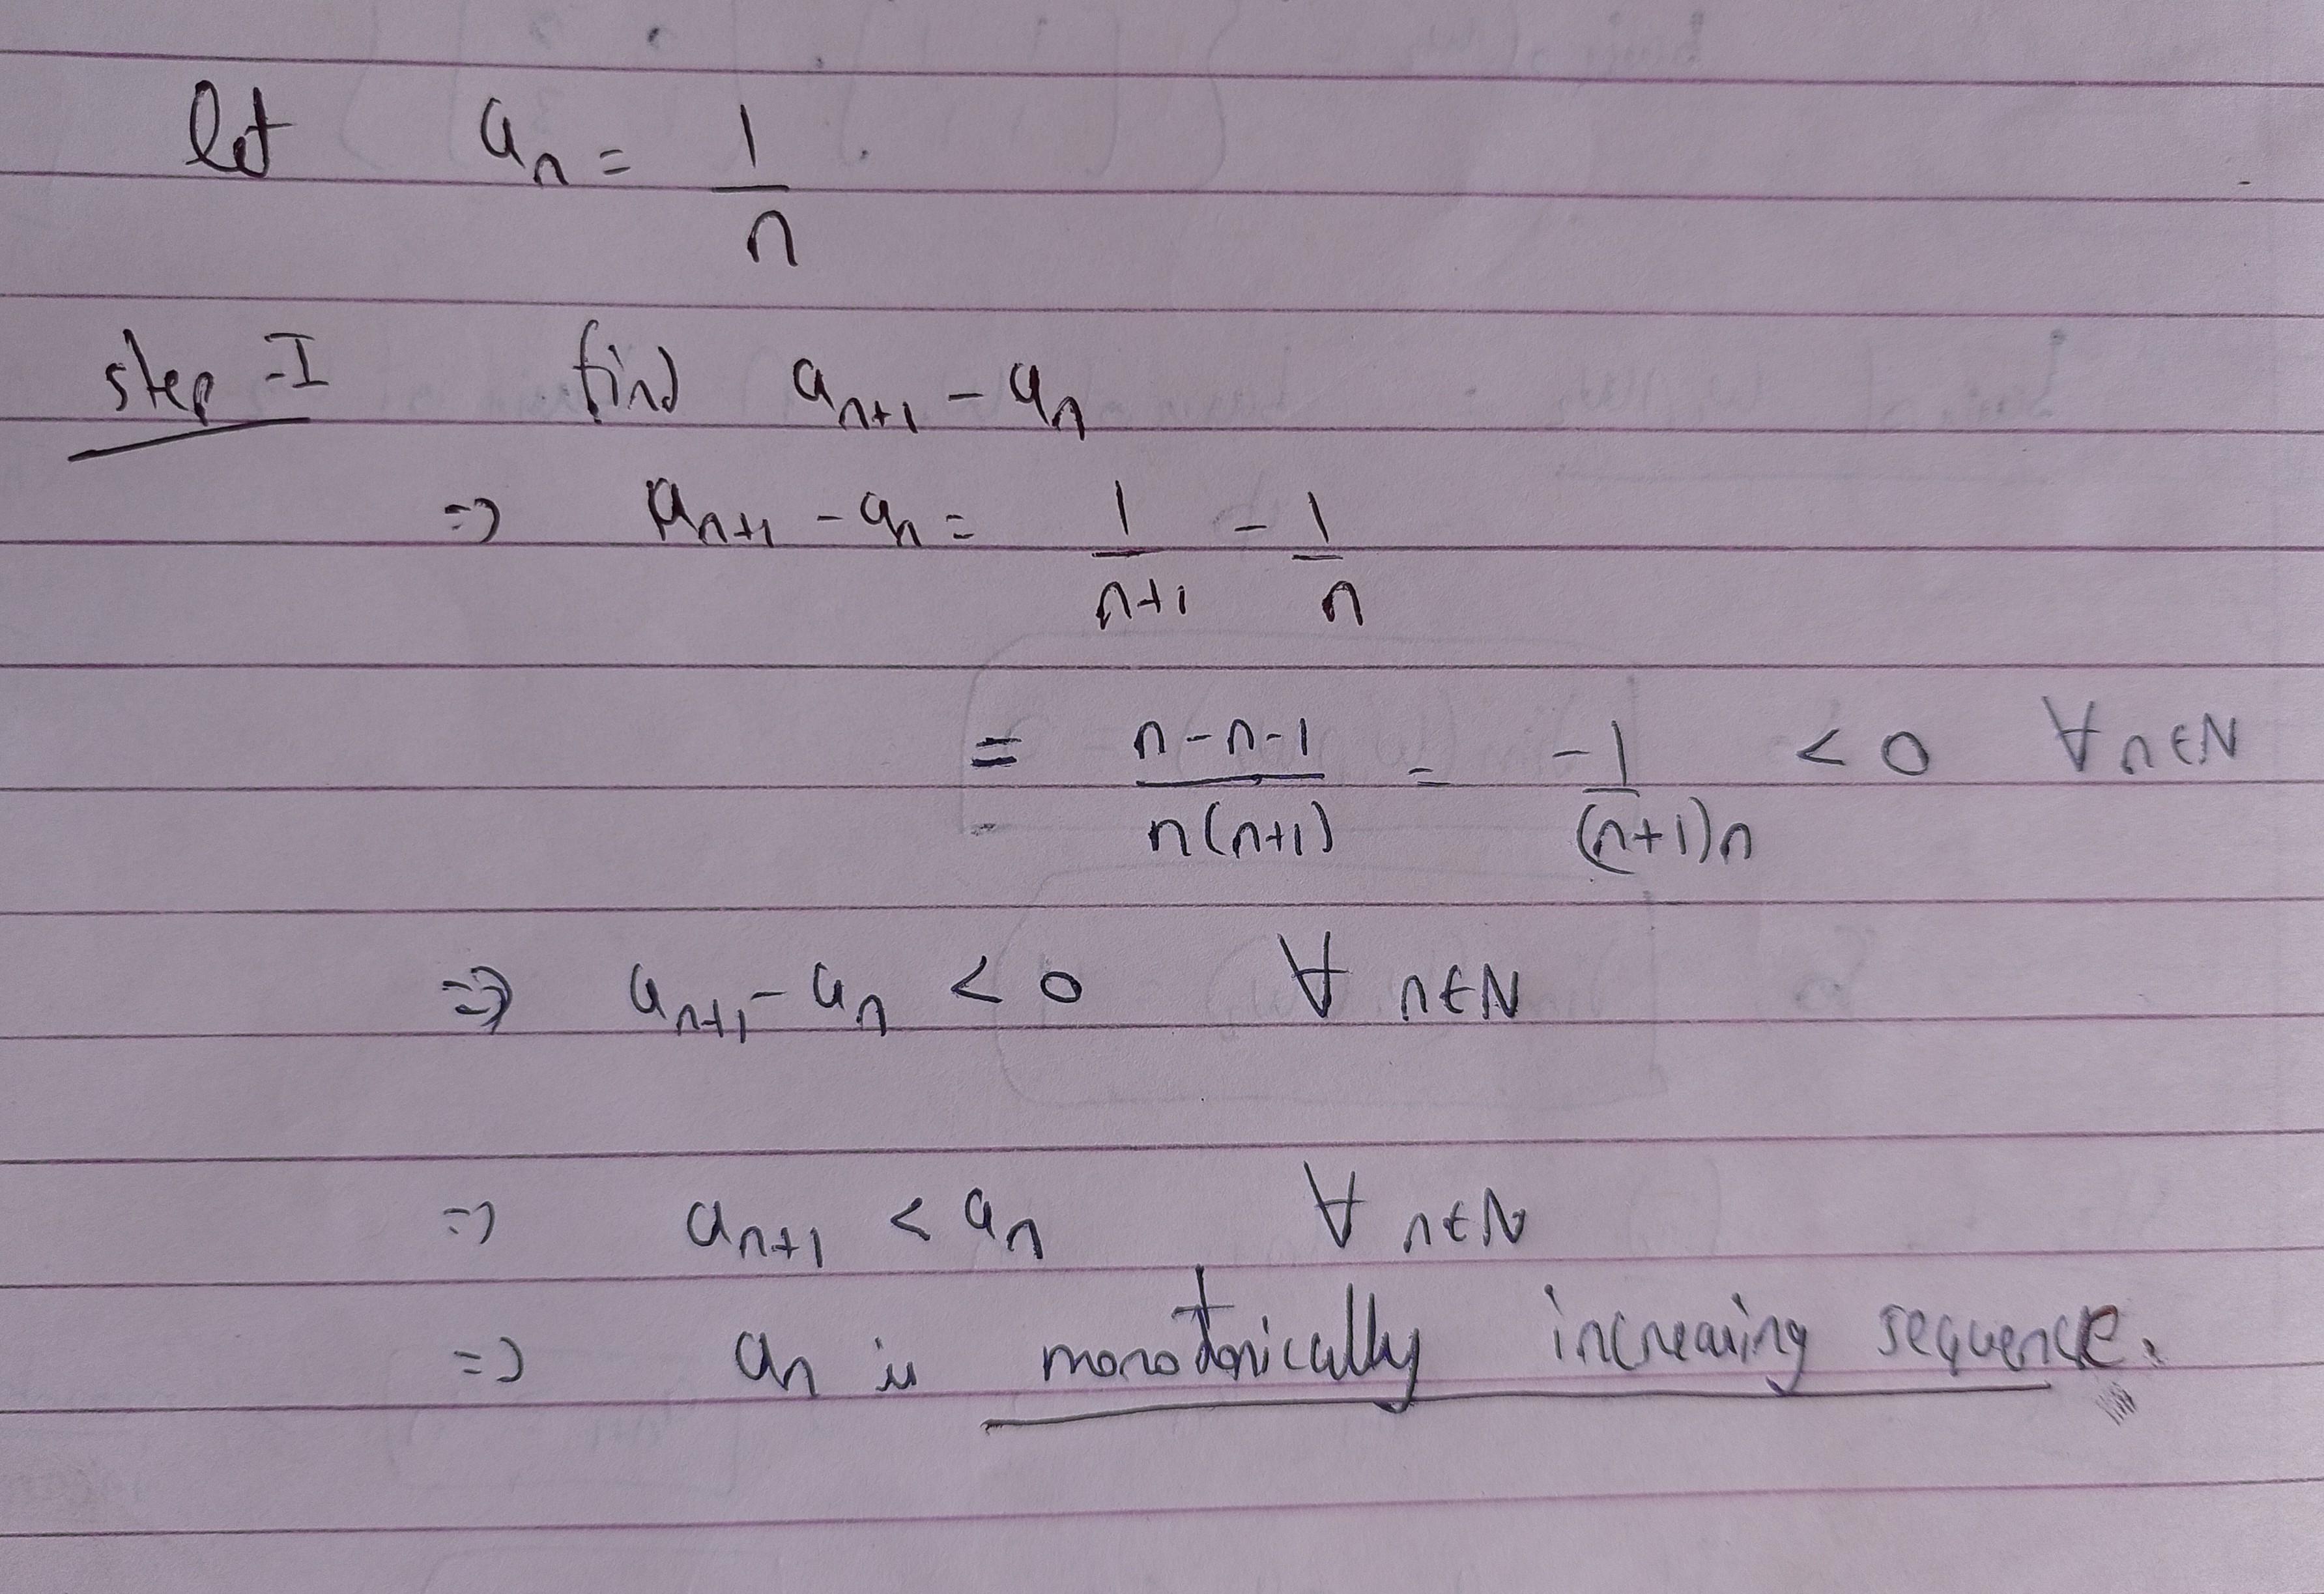 let a_n = 1/n
step-I find a_{n+1} - a_n
=> a_{n+1} - a_n = 1/(n+1) - 1/n
= (n-n-1)/(n(n+1)) = -1/((n+1)n) < 0 ∀ n∈N
=> a_{n+1} - a_n < 0 ∀ n∈N
=> a_{n+1} < a_n ∀ n∈N
=> a_n is monotonically increasing sequence.